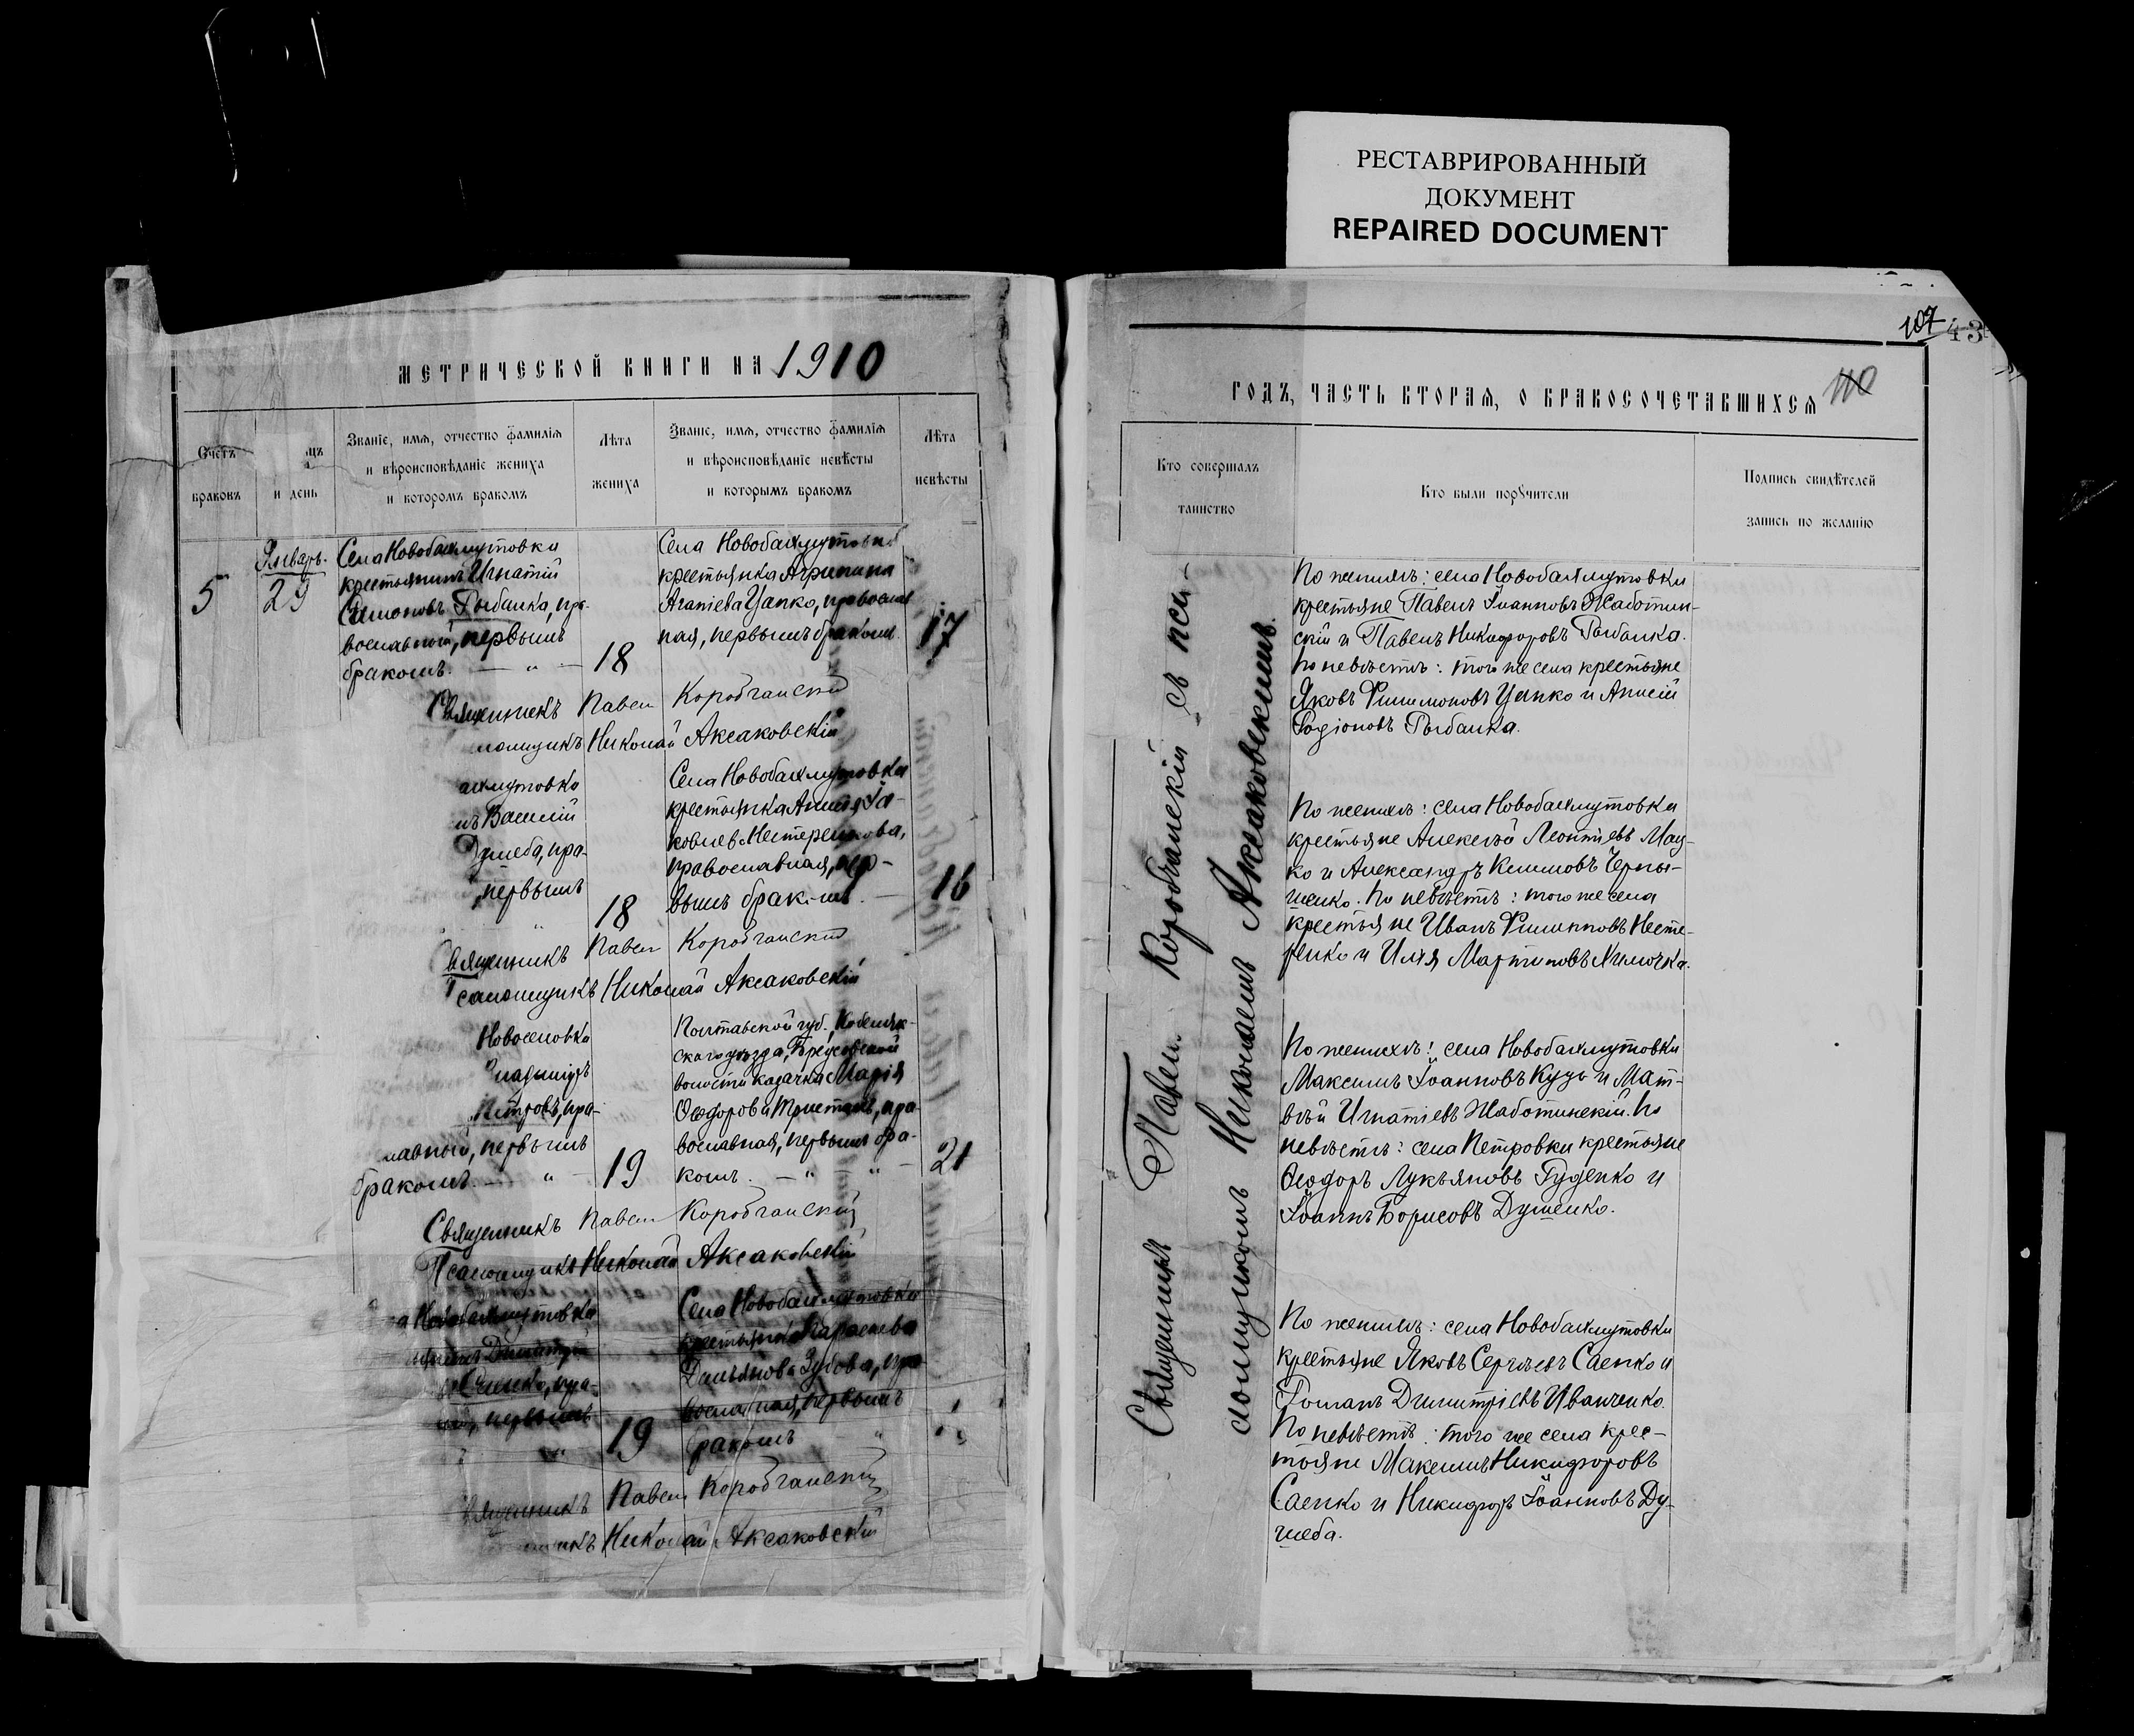 РЕСТАВРИРОВАННЫЙ
ДОКУМЕНТ
REPAIRED DOCUMENT
МЕТРИЧЕСКОЙ КНИГИ НА 1910
Счетъ
браковъ
цъ
и день
Званіе, имя, отчество фамилія
и вѣроисповѣданіе жениха
и которомъ бракомъ
Лѣта
жениха
Званіе, имя, отчество фамилія
и вѣроисповѣданіе невѣсты
и которымъ бракомъ
Лѣта
невѣсты
5
Январь
29
Села Новобахмутовки
крестьянинъ Игнатій
Симоновъ Рыбалка, пра-
вославный, первымъ
бракомъ. — „ —
18
Села Новобахмутовки
крестьянка Агрипина
Цапко, православ
ная, первымъ бракомъ
17
Священникъ Павелъ Коробчанскій
ломщикъ Николай Аксаковскій
ахмутовка
нъ Василій
Душеба, пра-
первымъ
18
Села Новобахмутовка
крестьянка Анна Іа-
ковлев Нестеренкова,
православная, пер-
вымъ браком. —
16
Священникъ Павелъ Коробчанскій
Псаломщикъ Николай Аксаковскій
Новоселовка
Владиміръ
Петровъ, пра-
лавный, первымъ
бракомъ. — „ —
19
Полтавской губ., Кобеляк-
скаго уѣзда,
волости казачка Марія
Ѳеодорова пра-
вославная, первымъ бра-
комъ. — „ — „ —
21
Священникъ Павелъ Коробчанскій
Псаломщикъ Николай Аксаковскій
а Новобахмутовка
Димитрій
пра-
первымъ
„
19
Села Новобахмутовка
крестьянка Параскева
Демьянова Зубова, пра
вославная, первымъ
ракомъ „
вященникъ Павелъ Коробчанскій
щикъ Николай Аксаковскій
107
43
110
ГОДЪ, ЧАСТЬ ВТОРАЯ, О БРАКОСОЧЕТАВШИХСЯ
Кто совершалъ
таинство
Кто были поручители
Подпись свидѣтелей
запись по желанію
Священникъ Павелъ Коробчанскій съ пса-
ломщикомъ Николаемъ Аксаковскимъ.
По женихѣ: села Новобахмутовки
крестьяне Павелъ Іоанновъ Жаботин-
скій и Павелъ Никифоровъ Рыбалка.
По невѣстѣ: того же села крестьяне
Яковъ Филимоновъ Цапко и Алисій
Родіоновъ Рыбалка.
По женихѣ: села Новобахмутовка
крестьяне Алексѣй Леонтіевъ Мац-
ко и Александръ Климовъ Черны-
шенко. По невѣстѣ: того же села
крестьяне Иванъ Филипповъ Несте-
ренко и Илія Мартиновъ Химочка.
По женихѣ: села Новобахмутовки
Максимъ Іоанновъ Куць и Мат-
вѣй Игнатіевъ Жаботинскій. По
невѣстѣ: села Петровки крестьяне
Ѳеодоръ Лукьяновъ Руденко и
Іоаннъ Борисовъ Душенко.
По женихѣ: села Новобахмутовки
крестьяне Яковъ Сергѣевъ Саенко и
Романъ Димитріевъ Иванченко.
По невѣстѣ: того же села крес-
тьяне Максимъ Никифоровъ
Саенко и Никифоръ Іоанновъ Ду-
шеба.